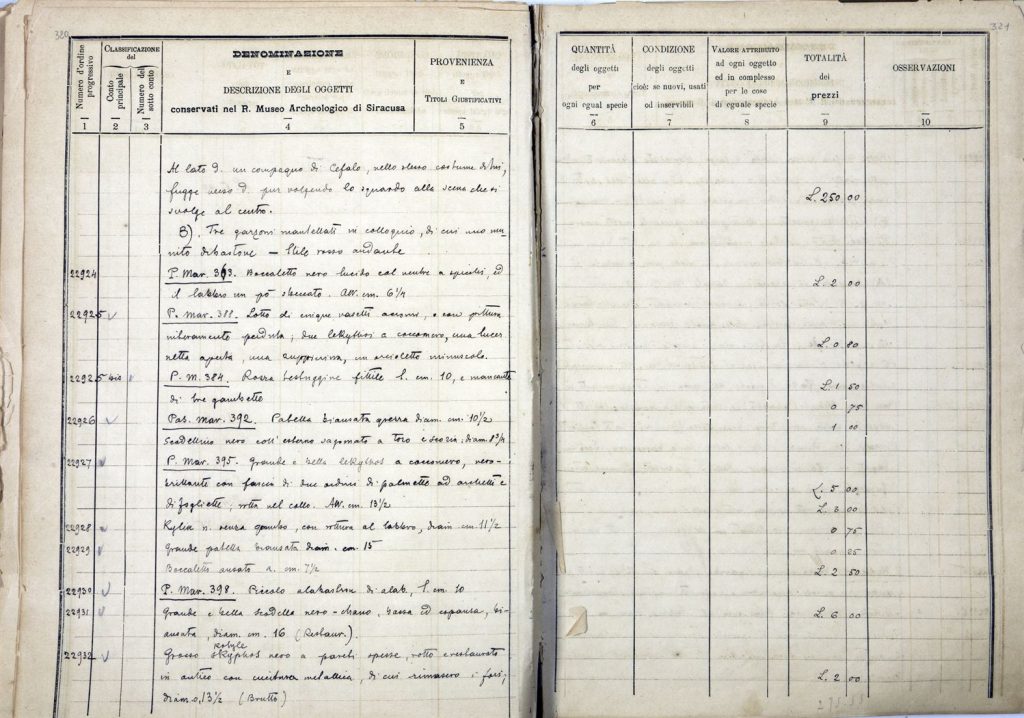 320
Numero d'ordine progressivo
CLASSIFICAZIONE del
Conto principale
Numero del sotto conto
DENOMINAZIONE
E
DESCRIZIONE DEGLI OGGETTI
conservati nel R. Museo Archeologico di Siracusa
PROVENIENZA
E
TITOLI GIUSTIFICATIVI
1 2 3 4 5
Al lato d. un compagno di Cefalo, nello stesso costume di lui,
fugge verso d. pur volgendo lo sguardo alla scena che si
svolge al centro.
B). Tre garzoni mantellati in colloquio, di cui uno mu-
nito di bastone — Stile rosso andante
22924 P. Mar. 363. Boccaletto nero lucido col ventre a spicchi, ed
il labbro un pò sbeccato. Alt. cm. 6 1/4
22925 P. Mar. 388. Lotto di cinque vasetti acromi, o con pittura
interamente perduta; due lekythoi a cocomero, una lucer
netta aperta, una, un orcioletto minuscolo.
22925 bis P. M. 384. Rozza testuggine fittile l. cm. 10, e mancante
di tre gambette
22926 Pas. Mar. 392. Patella biansata grezza diam. cm. 10 1/2
Scodellino nero coll' esterno sagomato a toro e scozia; diam. 8 3/4
22927 P. Mar. 395. Grande e bella lekythos a cocomero, nero-
brillante con fascia di due ordini di palmette ad archetti e
di foglioette; rotta nel collo. Alt. cm. 13 1/2
22928 Kylix n. senza gambo, con rottura al labbro, diam. cm. 11 1/2
22929 Grande patella biansata diam. cm. 15
Boccaletto ansato a. cm. 7 1/2
22930 P. Mar. 398. Piccolo alabastron di alab. l. cm. 10
22931 Grande e bella scodella nero-, bassa ed espansa, bi-
ansata, diam. cm. 16 (Restaur.).
kotyle
22932 Grosso skyphos nero a pareti spesse, rotto e restaurato
in antico con cucitura metallica, di cui rimasero i fori;
diam. 0,13 1/2 (Brutto)
321
QUANTITÀ
degli oggetti
per
ogni egual specie
CONDIZIONE
degli oggetti
cioè: se nuovi, usati
od inservibili
VALORE ATTRIBUITO
ad ogni oggetto
ed in complesso
per le cose
di eguale specie
TOTALITÀ
dei
prezzi
OSSERVAZIONI
6 7 8 9 10
L. 250 00
L. 2 00
L. 0 80
L. 1 50
0 75
1 00
L. 5 00
L. 3 00
0 75
0 25
L. 2 50
L. 6 00
L. 2 00
275.55